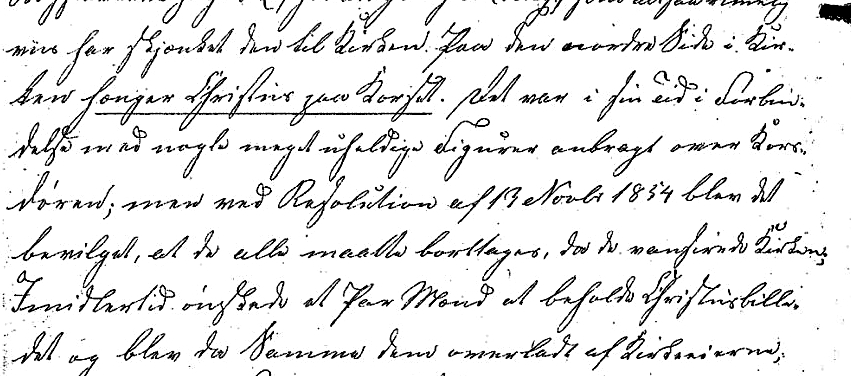 viis har skjænket den til Kirken. Paa den nordre Side i Kir-
ken hænger Christus paa Korset. Det var i sin Tid i Forbin-
delse med nogle meget uheldige Figurer anbragt over Kors-
døren; men ved Resolution af 13 Novbr 1854 blev det
bevilget, at de alle maatte borttages, da de vansirede Kirken;
Imidlertid ønskede et Par Mænd at beholde Christusbille-
det og blev da Samme dem overladt af Kirkeeierne;